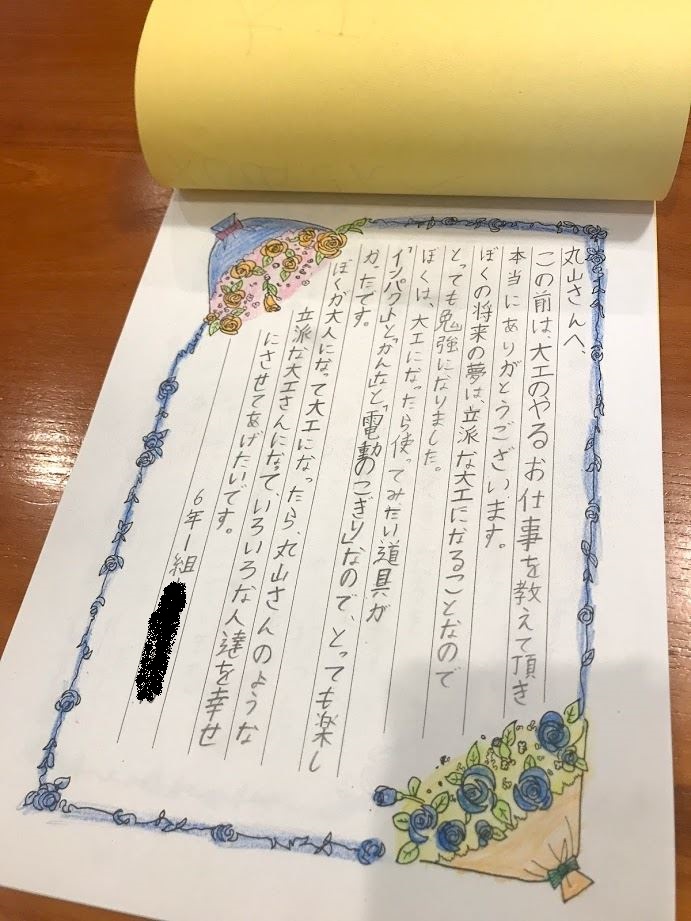 丸山さんへ、
この前は、大工のやるお仕事を教えて頂き
本当にありがとうございます。
ぼくの将来の夢は、立派な大工になることなので
とても勉強になりました。
ぼくは、大工になったら使ってみたい道具が
「インパクト」と「かんな」と「電動のこぎり」なので、とっても楽し
かったです。
ぼくが大人になって大工になったら、丸山さんのような
立派な大工さんになって、いろいろな人達を幸せ
にさせてあげたいです。
6年1組